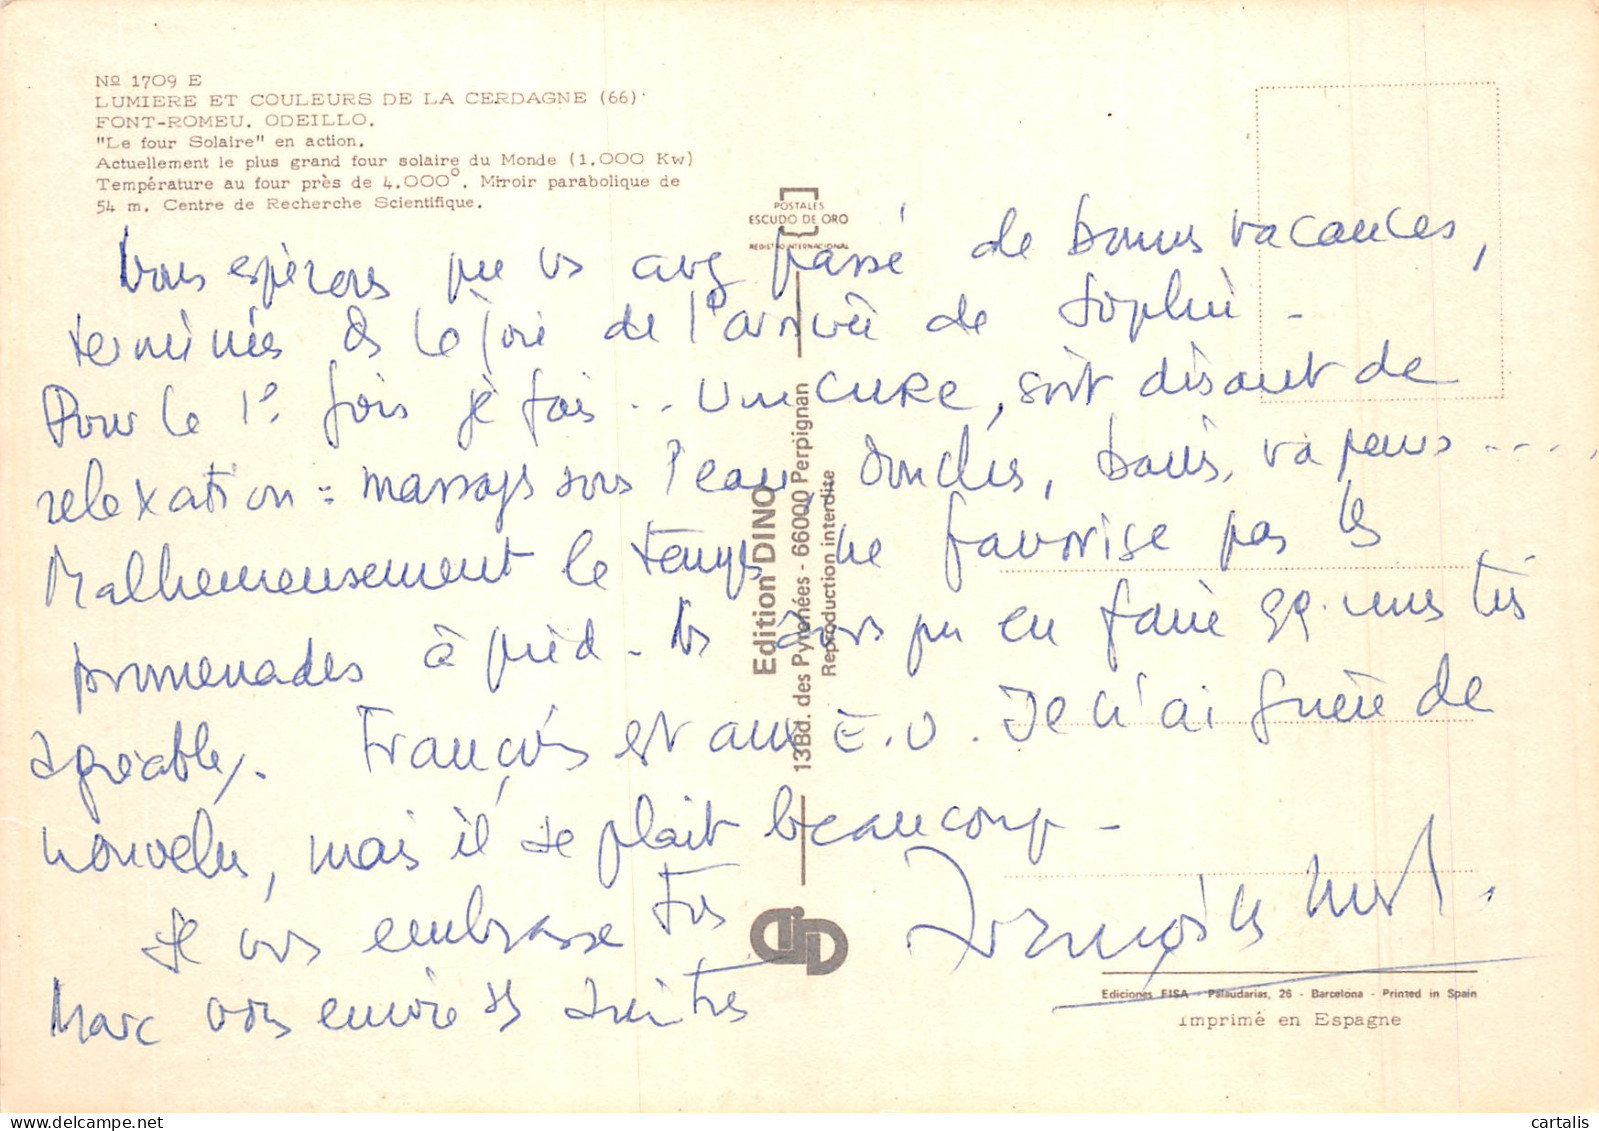 Nº 1709 E
LUMIERE ET COULEURS DE LA CERDAGNE (66)
FONT-ROMEU. ODEILLO.
"Le four Solaire" en action.
Actuellement le plus grand four solaire du Monde (1.000 Kw)
Température au four près de 4.000°. Miroir parabolique de
54 m. Centre de Recherche Scientifique.
POSTALES
ESCUDO DE ORO
REGISTRO INTERNACIONAL
Nous espérons que vs avez passé de bonnes vacances,
terminées ds la joie de l'arrivée de Sophie.
Pour la 1e fois je fais .. une CURE, soit disant de
relaxation = massages sous l'eau, douches, bains, vapeurs ....
Malheureusement le temps ne favorise pas les
promenades à pied. Ns avons pu en faire qq. unes très
agréables. François est aux E.U. Je n'ai guère de
nouvelles, mais il se plait beaucoup -
Je vous embrasse très
Marc vous envoie ses
Edition DINO
13Bd. des Pyrénées - 66000 Perpignan
Reproduction interdite
DiD
Ediciones FISA - Palaudarias, 26 - Barcelona - Printed in Spain
Imprimé en Espagne
cartalis